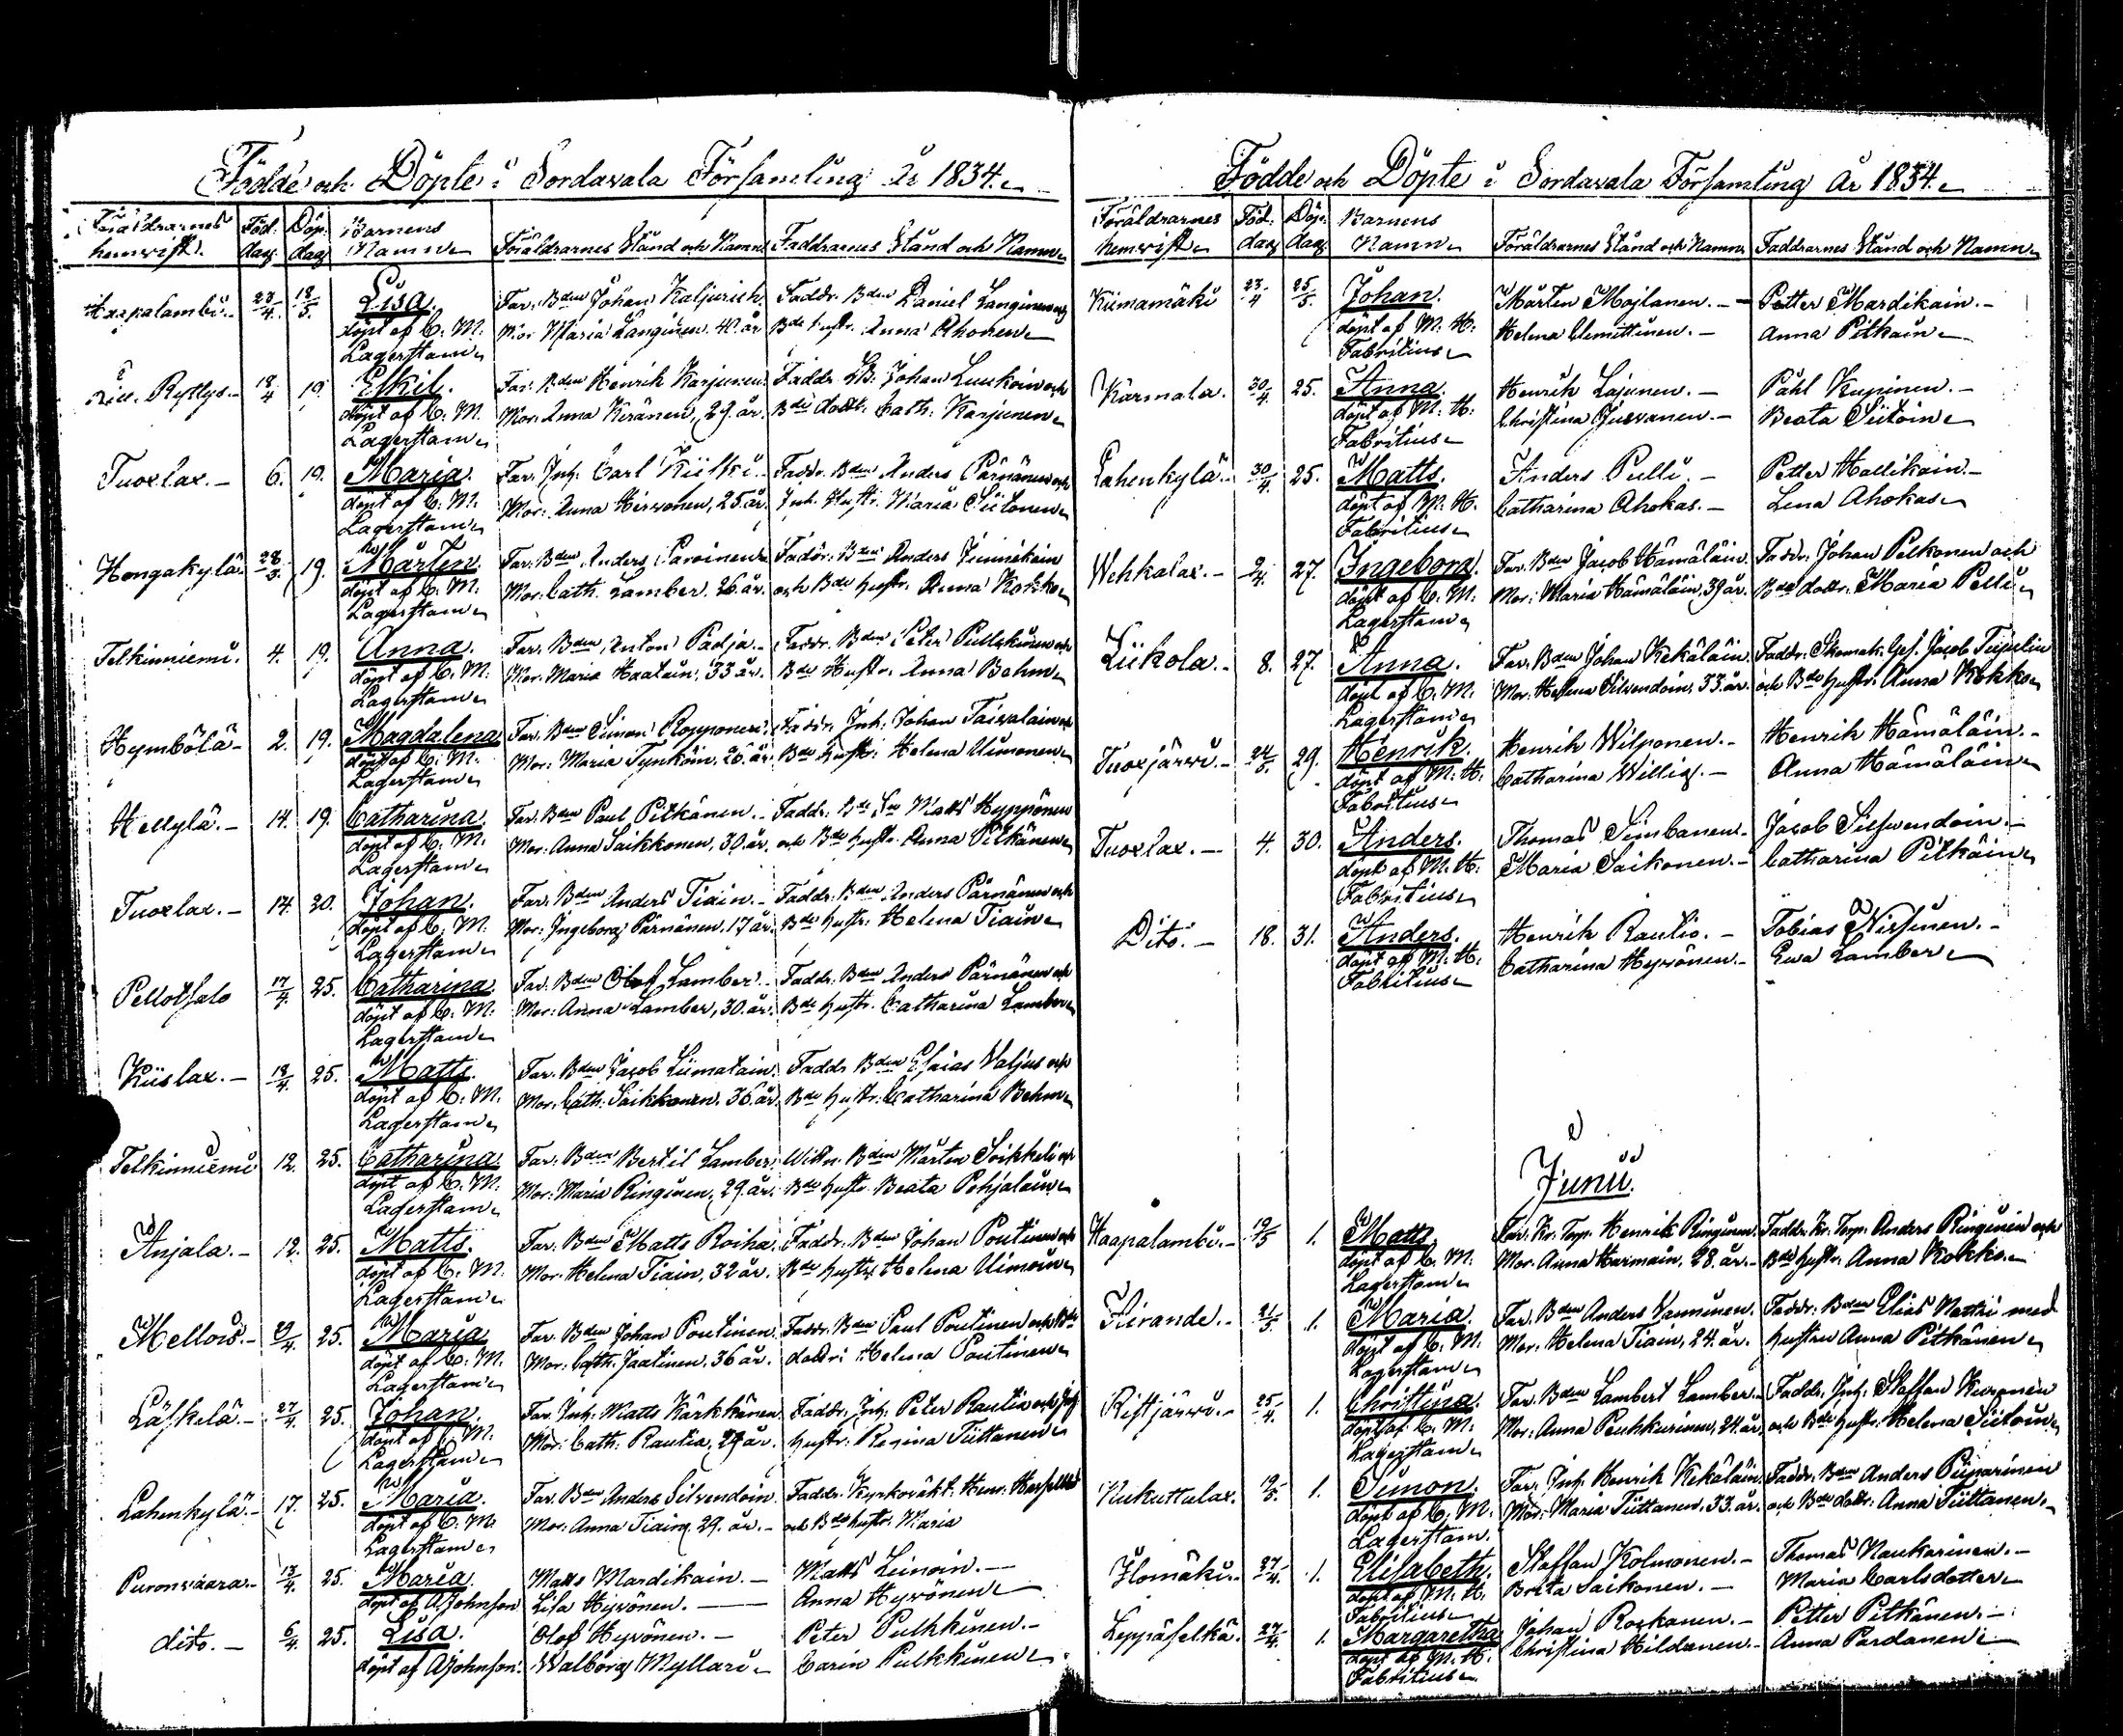 Födde och Döpte i Sordavala Församling år 1834.
Föräldrarnes hemvist. Föd: dag. Döp: dag Barnens Namn Föräldrarnes Stånd och Namn Faddrarnes Stånd och Namn
Haapalambi. 23/4. 18/5. Lisa. Far. Bden Johan Kaljurick. Faddr. Bden Daniel Länginen och
döpt af C. M. Mor Maria Länginen. 40. år Bde hustr. Anna Ahonen
Lagerstam
Ryttys. 18/4 19. Eskil. Far: Bden Henrik Karjunen. Faddr. Johan Luukoin och
döpt af C. M. Mor. Anna Kiränen, 29. år. Bde dottr. Cath: Karjunen
Lagerstam
Tuoxlax. 6. 19. Maria. Far. Inh. Carl Kiiski. Faddr. Bden Anders Pärnänen och
döpt af C. M. Mor: Anna Hirvonen, 25. år. Inh. Hustr. Maria Siitonen
Lagerstam
Hongakylä. 28/3. 19. Mårten. Far. Bden Anders Paroinen Faddr. Bden Anders
döpt af C. M. Mor: Cath. Lamber. 26. år. och Bde hustr. Anna Kokko
Lagerstam
Telkinniemi. 4. 19. Anna. Far. Bden Anton Padja. Faddr. Bden Peter Pullikinen och
döpt af C. M. Mor. Maria Haatain, 33 år. Bde Hustr. Anna Behm
Lagerstam
Hymbölä 2. 19. Magdalena Far. Bden Simon Ropponen. Faddr. Inh. Johan Taivalain och
döpt af C. M. Mor: Maria Tynkäin, 26. år. Bde hustr. Helena Uimonen
Lagerstam
Hellylä. 14. 19. Catharina. Far. Bden Paul Pitkänen. Faddr. Bde Sn Matts Hyppönen
döpt af C. M. Mor. Anna Saikkonen, 30. år. och Bde hustr. Anna Pitkänen
Lagerstam
Tuoxlax. 14. 20. Johan. Far. Bden Anders Tiain. Faddr. Bden Anders Pärnänen och
döpt af C. M. Mor: Ingeborg Pärnänen, 17 år. Bde hustr. Helena Tiain
Lagerstam
Pellotsalo 17/4 25. Catharina. Far. Bden Olof Lamber. Faddr. Bden Anders Pärnänen och
döpt af C. M. Mor: Anna Lamber, 30. år. Bde hustr. Catharina Lamber
Lagerstam
Kiislax. 18/4. 25. Matts. Far. Bden Jacob Liimatain. Faddr. Bden Esaias Valjus och
döpt af C. M. Mor: Cath. Saikkonen. 36. år. Bde hustr: Catharina Behm
Lagerstam
Telkinniemi 12. 25. Catharina. Far. Bden Bertil Lamber. Bden Mårten Soikkeli och
döpt af C. M. Mor: Maria Ringinen, 29. år. Bde hustr. Beata Pohjalain
Lagerstam
Anjala. 12. 25. Matts. Far. Bden Matts Roiha. Faddr. Bden Johan Poutinen och
döpt af C. M. Mor. Helena Tiain, 32 år. Bde hustr. Helena Uimoin
Lagerstam
Mellois. 29/4. 25. Maria Far. Bden Johan Poutinen. Faddr. Bden Paul Poutinen och Bde
döpt af C. M. Mor: Cath. Jaatinen, 36 år. dottr: Helena Poutinen
Lagerstam
Läskelä. 27/4. 25. Johan. Far. Inh. Matts Kärkkänen Faddr. Inh. Peter Rautio och Inh.
döpt af C. M. Mor: Cath: Rautia, 29 år. hustr. Regina Tiittanen
Lagerstam
Lahenkylä. 17. 25. Maria. Far. Bden Anders Silvendoin. Faddr. Kyrkovakt. Henr.
döpt af C. M. Mor. Anna Tiain, 29. år. och Bde hustr. Maria
Lagerstam
Puronvaara. 13/4. 25. Maria. Matts Mardikain. Matts Leinoin.
döpt af A Johnson Lisa Hyvönen. Anna Hyvönen
dito. 6/4. 25. Lisa. Olof Hyvönen. Peter Pulkkinen.
döpt af A Johnson. Walborg Myllari. Carin Pulkkinen
Födde och Döpte i Sordavala Församling år 1834.
Föräldrarnes hemvist Föd: dag Döp: dag Barnens Namn Föräldrarnes Stånd och Namn Faddrarnes Stånd och Namn
Kiimamäki 23/4 25/5. Johan. Mårten Mojlanen. Petter Mardikain.
döpt af M. H. Helena Clemittinen. Anna Pitkäin
Fabritius
Karmala. 30/4. 25. Anna. Henrik Lajunen. Påhl Kupinen.
döpt af M. H. Christina Jusvanen. Beata Siitoin
Fabritius
Lahenkylä. 30/4. 25. Matts. Anders Pelli. Petter Hallikain.
döpt af M. H. Catharina Ahokas. Lena Ahokas
Fabritius
Wehkalax. 2/4. 27. Ingeborg. Far. Bden Jacob Hämäläin. Faddr. Johan Pelkonen och
döpt af C. M. Mor: Maria Hämäläin, 39 år. Bde dottr. Maria Pelli
Lagerstam
Liikola. 8. 27. Anna. Far. Bden Johan Kekäläin. Faddr. Skomak. Ges. Jacob
döpt af C. M. Mor. Helena Silvendoin, 33. år. och Bde hustr. Anna Kokko
Lagerstam
Tuoxjärvi. 24/5. 29. Henrik. Henrik Wilponen. Henrik Hämäläin.
döpt af M. H. Catharina Willig. Anna Hämäläin
Fabritius
Tuoxlax. 4. 30. Anders. Thomas Simbanen. Jacob Silfwendoin.
döpt af M. H. Maria Saikonen. Catharina Pitkäin
Fabritius
Dito. 18. 31. Anders. Henrik Rautio. Tobias Nissinen.
döpt af M. H. Catharina Hyvönen. Ewa Lamber
Fabritius
Junii.
Haapalambi. 19/5 1. Matts. Far. Kr. Torp. Henrik Ringinen. Faddr. Kr. Torp. Anders Ringinen och
döpt af C. M. Mor. Anna Harmain, 28. år. Bde hustr. Anna Kokko.
Lagerstam
Tiirande. 21/5. 1. Maria. Far. Bden Anders Vanninen. Faddr. Bden Elias Nathi med
döpt af C. M. Mor. Helena Tiain, 24. år. hustru Anna Pitkänen
Lagerstam
Ristjärvi. 25/4. 1. Christina. Far. Bden Lambert Lamber. Faddr. Inh. Staffan Kuronen
döpt af C. M. Mor: Anna Peuhkurinen, 24. år. och Bde hustr. Helena Siitoin
Lagerstam
Kukuttulax. 19/5. 1. Simon. Far. Inh. Henrik Kekäläin. Faddr. Bden Anders Piiparinen
döpt af C. M. Mor: Maria Tiittanen. 33. år. och Bde dottr: Anna Tiittanen.
Lagerstam.
Ilomäki. 27/4. 1. Elisabeth. Staffan Kolmonen. Thomas Naukarinen.
döpt af M. H. Brita Saikonen. Maria Carlsdotter
Fabritius
Leppäselkä. 27/4. 1. Margaretha Johan Roskanen. Petter Pitkänen.
döpt af M. H. Christina Hildanen. Anna Pardanen
Fabritius